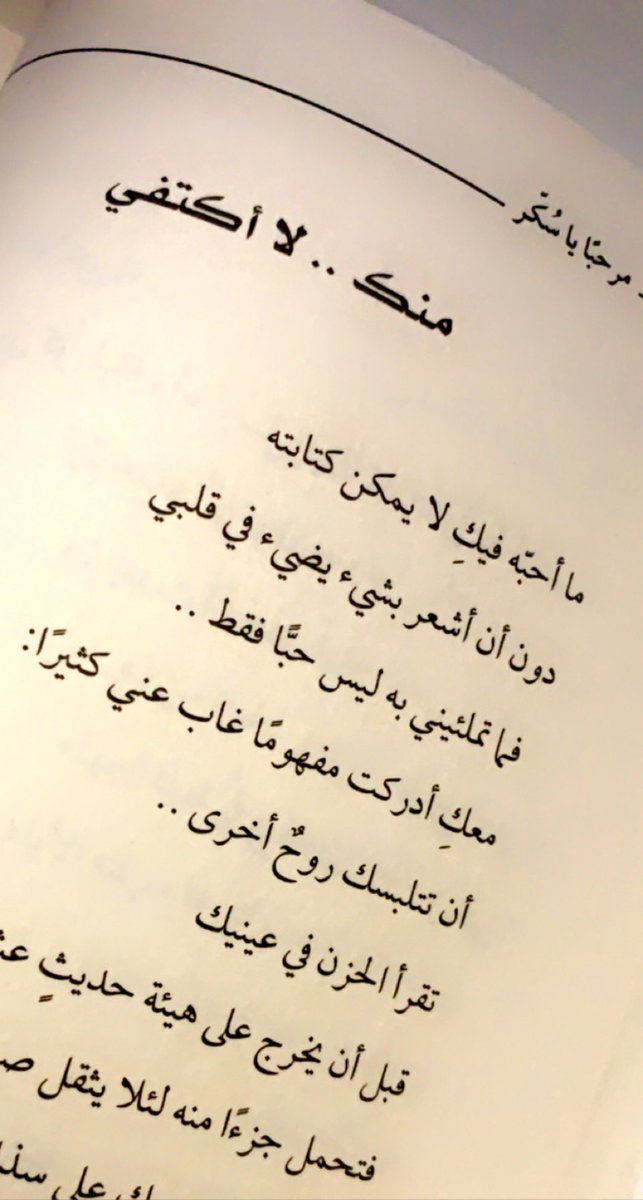 مرحبًا يا سُكّر
منك .. لا أكتفي
ما أحبّه فيكِ لا يمكن كتابته
دون أن أشعر بشيء يضيء في قلبي
فما تملئيني به ليس حبًّا فقط ..
معكِ أدركت مفهومًا غاب عني كثيرًا:
أن تتلبسك روحٌ أخرى ..
تقرأ الحزن في عينيك
قبل أن يخرج على هيئة حديثٍ
فتحمل جزءًا منه لئلا يثقل
على